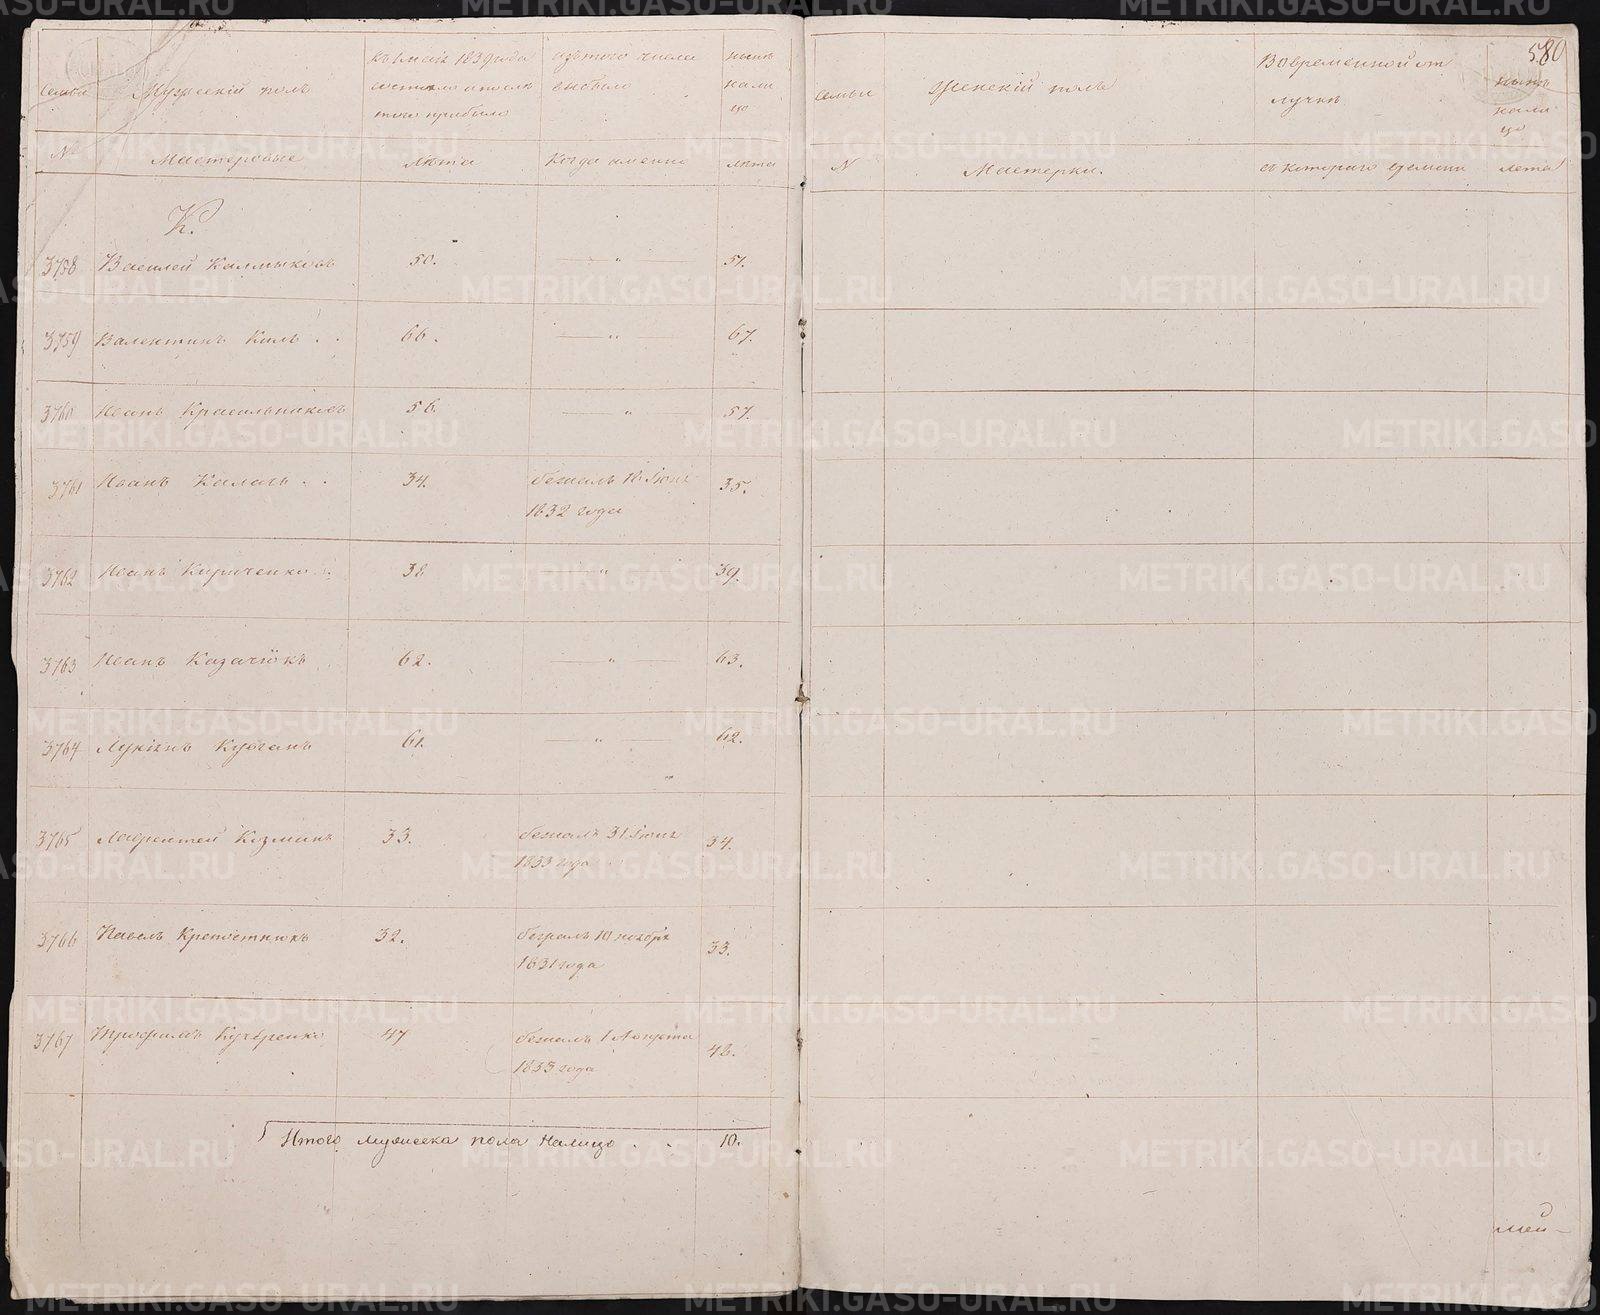 580
Семьи
Мужескій полъ
къ 1 маія 1839 года
состояло и после
того прибыло
изъ того числа
выбыло
нынѣ
нали
цо
№
Мастеровые
лѣта
Когда именно
лѣта
К.
3758 Василей Калмыковъ 50. — " — 51.
3759 Валентинъ Киль . . 66. — " — 67.
3760 Иванъ Красильниковъ 56. — " — 57.
3761 Иванъ Калачъ . . 34. бежалъ 18 Іюня 35.
1832 года
3762 Иванъ Кириченко . 38 — " — 39.
3763 Иванъ Казачюкъ 62. — " — 63.
3764 Лукіянъ Курганъ 61. — " — 62.
3765 Лаврентей Козминъ 33. бежалъ 31 Іюля 34.
1833 года
3766 Павелъ Крепостнюкъ 32. бежалъ 10 ноября 33.
1831 года
3767 Трофимъ Кучеренко 47 бежалъ 1 Августа 48.
1833 года
Итого мужеска пола налицо . . 10.
Семьи
Женскій полъ
Во временной от
лучке
нынѣ
нали
цо
N
Мастерки.
съ котораго времени
лета
мей-
METRIKI.GASO-URAL.RU